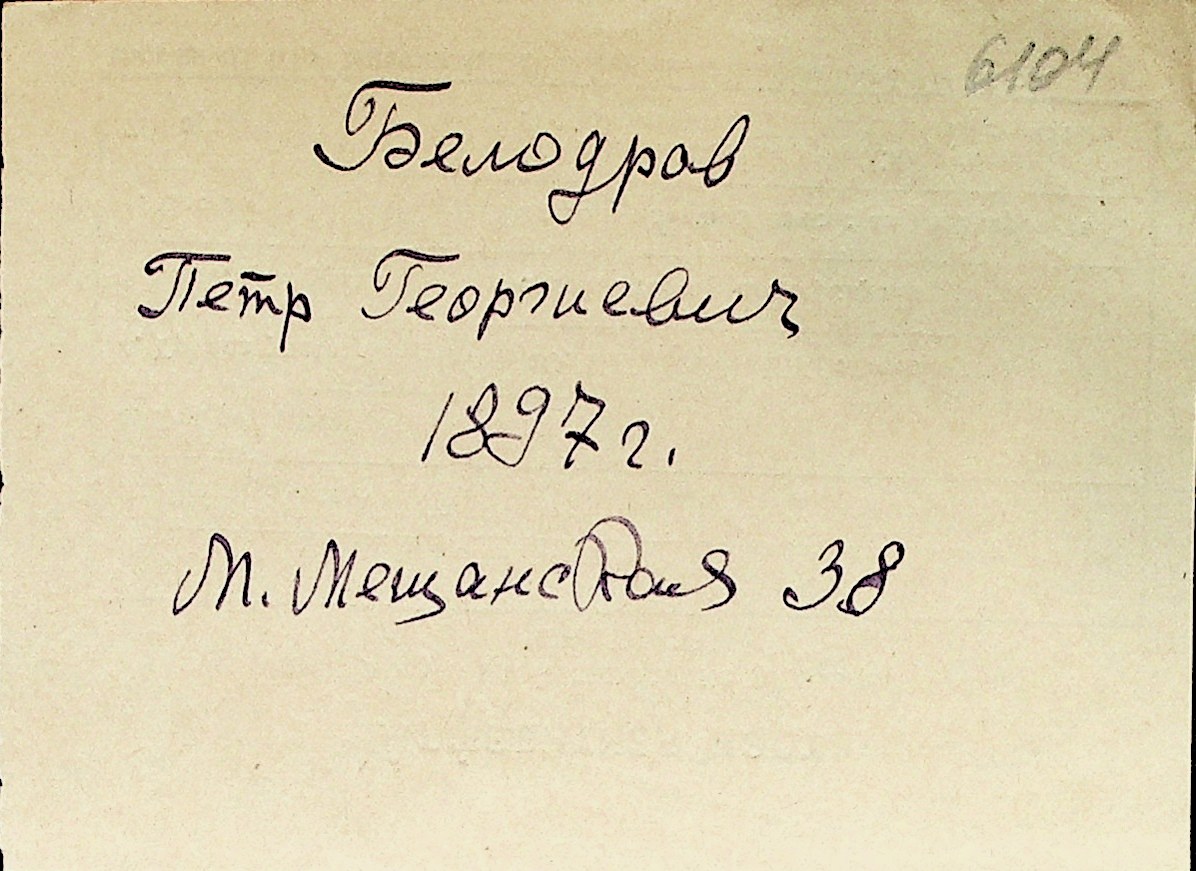 6104
Белодров
Петр Георгиевич
1897 г.
М. Мещанская 38